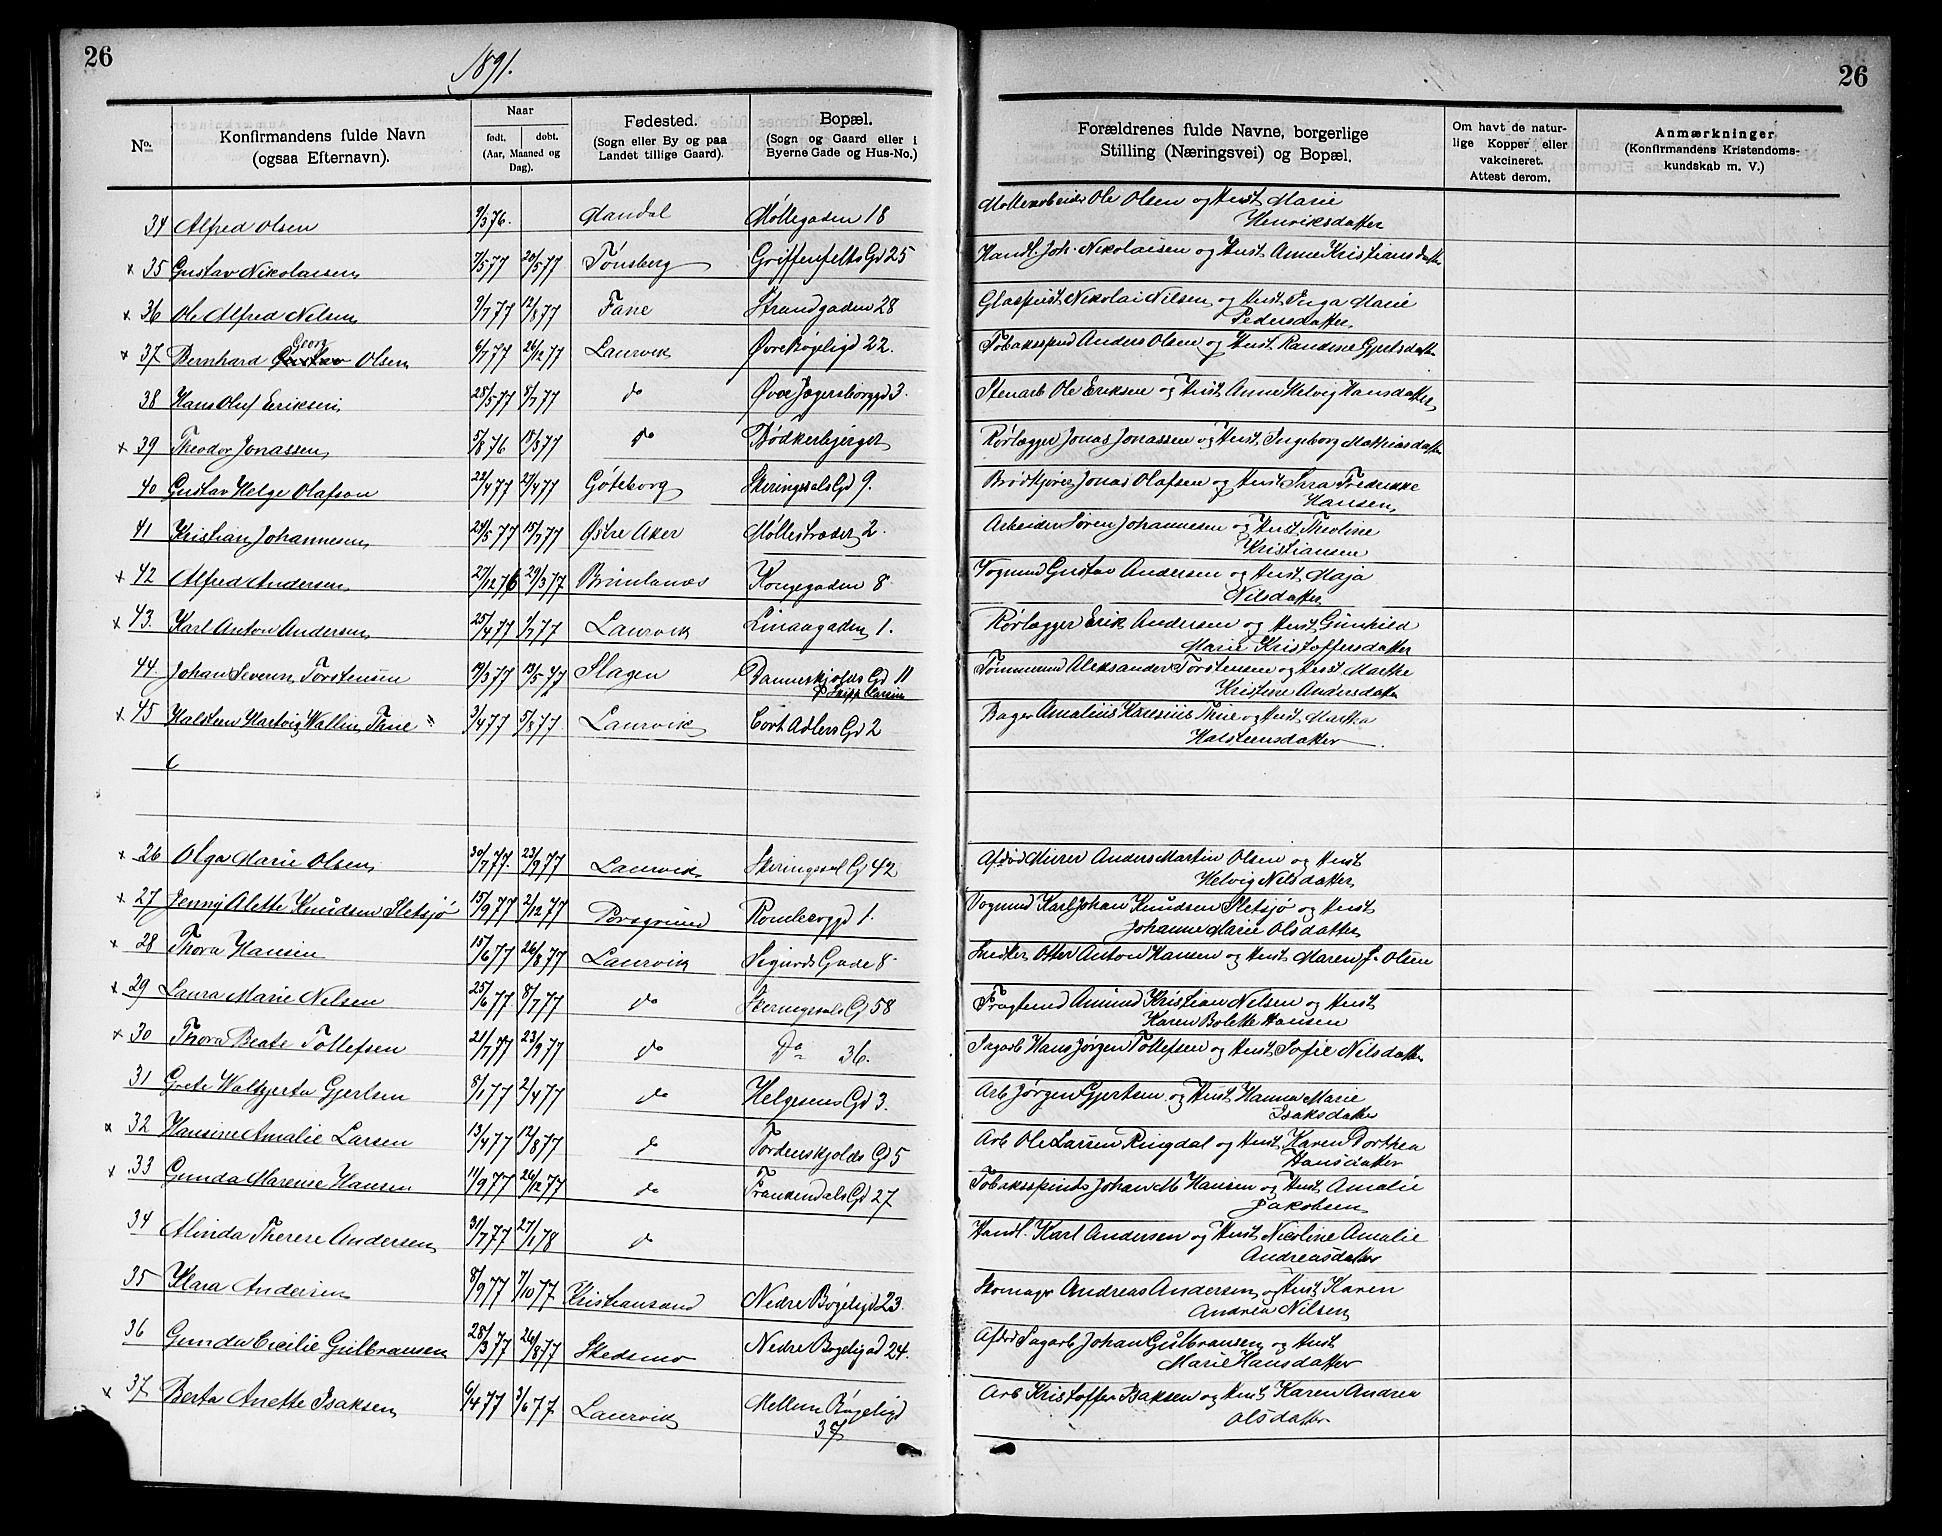 26
1891.
26
No. | Konfirmandens fulde Navn (ogsaa Efternavn). | Naar født. dobt. (Aar, Maaned og Dag). | Fødested. (Sogn eller By og paa Landet tillige Gaard). | Bopæl. (Sogn og Gaard eller i Byerne Gade og Hus-No.) | Forældrenes fulde Navne, borgerlige Stilling (Næringsvei) og Bopæl. | Om havt de naturlige Kopper eller vakcineret. Attest derom. | Anmærkninger (Konfirmandens Kristendomskundskab m. V.)
34 Alfred Olsen 9/3 76. Mandal Møllegaden 18 Møllearbeider Ole Olsen og Hust Marie
Henriksdatter
x 35 Gustav Nikolaisen 7/5 77 20/5 77 Tönsberg Griffenfelts Gd 25 Handl. Joh. Nikolaisen og Hust Anne Kristiansdatter
x 36 Ole Alfred Nilsen 9/7 77 12/8 77 Fane Strandgaden 28 Glaspust Nikolai Nilsen og Hust Inga Marie
Pedersdatter
Georg
x 37 Bernhard Gustav Olsen 6/7 77 26/12 77 Laurvik Øvre Bøgeligd 22. Tobaksspind Anders Olsen og Hust Randine Gjertsdatter
38 Hans Oluf Eriksen 28/5 77 8/7 77 do Øvre Jegersborggd 3. Stenarb Ole Eriksen og Hust Anne Helvig Hansdatter
x 39 Theodor Jonassen 5/8 76 18/3 77 do Bødkerbjerget Rørlægger Jonas Jonassen og Hust Ingeborg Mathiasdatter
40 Gustav Helge Olafson 22/4 77 24/4 77 Göteborg Skeringssals Gd 9. Brödkjörer Jonas Olafsen og Hust Sara Fredrikke
Hansen
41 Kristian Johannesen 24/5 77 15/7 77 Østre Aker Møllestrædet 2. Arbeider Søren Johannesen og Hust Theoline
Kristiansen
x 42 Alfred Andersen 27/12 76 29/3 77 Brunlanæs Kongegaden 8 Vogmand Gustav Andersen og Hust Maja
Nilsdatter
x 43. Karl Anton Andersen 25/4 77 1/7 77 Laurvik Linaagaden 1. Rørlægger Erik Andersen og Hust Gunhild
Marie Kristoffersdatter
44 Johan Severin Torstensen 19/3 77 13/5 77 Slagen Danneskjolds Gd 11 Tømmermd Aleksander Torstensen og Hust Marthe
Kristine Andersdatter
x 45 Halsteen Hartvig Wallin Thue 3/4 77 5/8 77. Laurvik Cort Adlers Gd 2 Bager Amalius Hansius Thue og Hust Martha
Halsteensdatter
x 26 Olga Marie Olsen 30/7 77. 23/9 77 Laurvik Skeringssal Gd 42 Afdød Murer Anders Martin Olsen og Hust
Helvig Nilsdatter
x 27 Jenny Alette Knudsen Sletsjø 15/9 77 2/12 77 Porsgrund Rombergd 1. Vogmnd Karl Johan Knudsen Sletsjø og Hust
Johanne Marie Olsdatter
x 28 Thora Hansen 15/6 77 26/8 77 Laurvik Sigurds Gade 8 Snedker Otter Anton Hansen og Hust Maren J. Olsen
x 29 Laura Marie Nilsen 25/6 77 8/7 77 do Skeringssals Gd 58 Fragtemd Amund Kristian Nilsen og Hust
Karen Bolette Hansen
x 30 Thora Beate Tollefsen 21/7 77 23/9 77 do Do 36. Sagarb Hans Jørgen Tollefsen og Hust Sofie Nilsdatter
31 Grete Walbjerta Gjertsen 8/1 77 2/4 77 do Helgesens Gd 3. Arb Jørgen Gjertsen og Hust Hanna Marie
Isaksdatter
x 32 Hansine Amalie Larsen 13/4 77 12/8 77 do Tordenskjolds Gd 5 Arb Ole Larsen Ringdal og Hust Karen Dorthea
Hansdatter
x 33 Gunda Marense Hansen 11/9 77 26/12 77 do Frankendals Gd 27 Tobaksspinds Johan M Hansen og Hust Amalie
Jakobsen
34 Alinda Therese Andersen 31/7 77 27/1 78 do Handl. Karl Andersen og Hust Nicoline Amalie
Andreasdatter
35 Klara Andersen 8/9 77 7/10 77. Kristiansand Nedre Bøgeligd 23. Skomagr Andreas Andersen og Hust Karen
Andrea Nilsen
36 Gunda Cecilie Gulbransen 28/3 77 26/8 77 Skedsmo Nedre Bøgeligad 24. Afdød Sagarb Johan Gulbransen og Hust
Marie Hansdatter
x 37 Berta Anette Isaksen 6/4 77 3/6 77. Laurvik Mellem Bøgeligd
37 Arb Kristoffer Isaksen og Hust Karen Andrea
Olsdatter